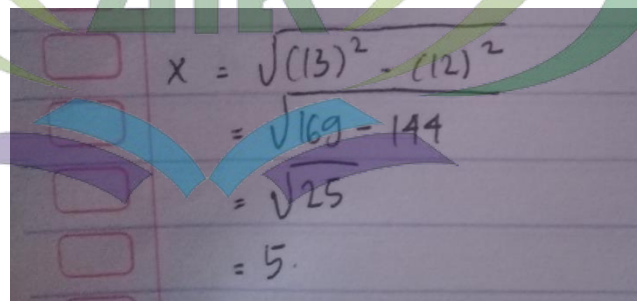 x = √(13)² - (12)²
= √169 - 144
= √25
= 5.